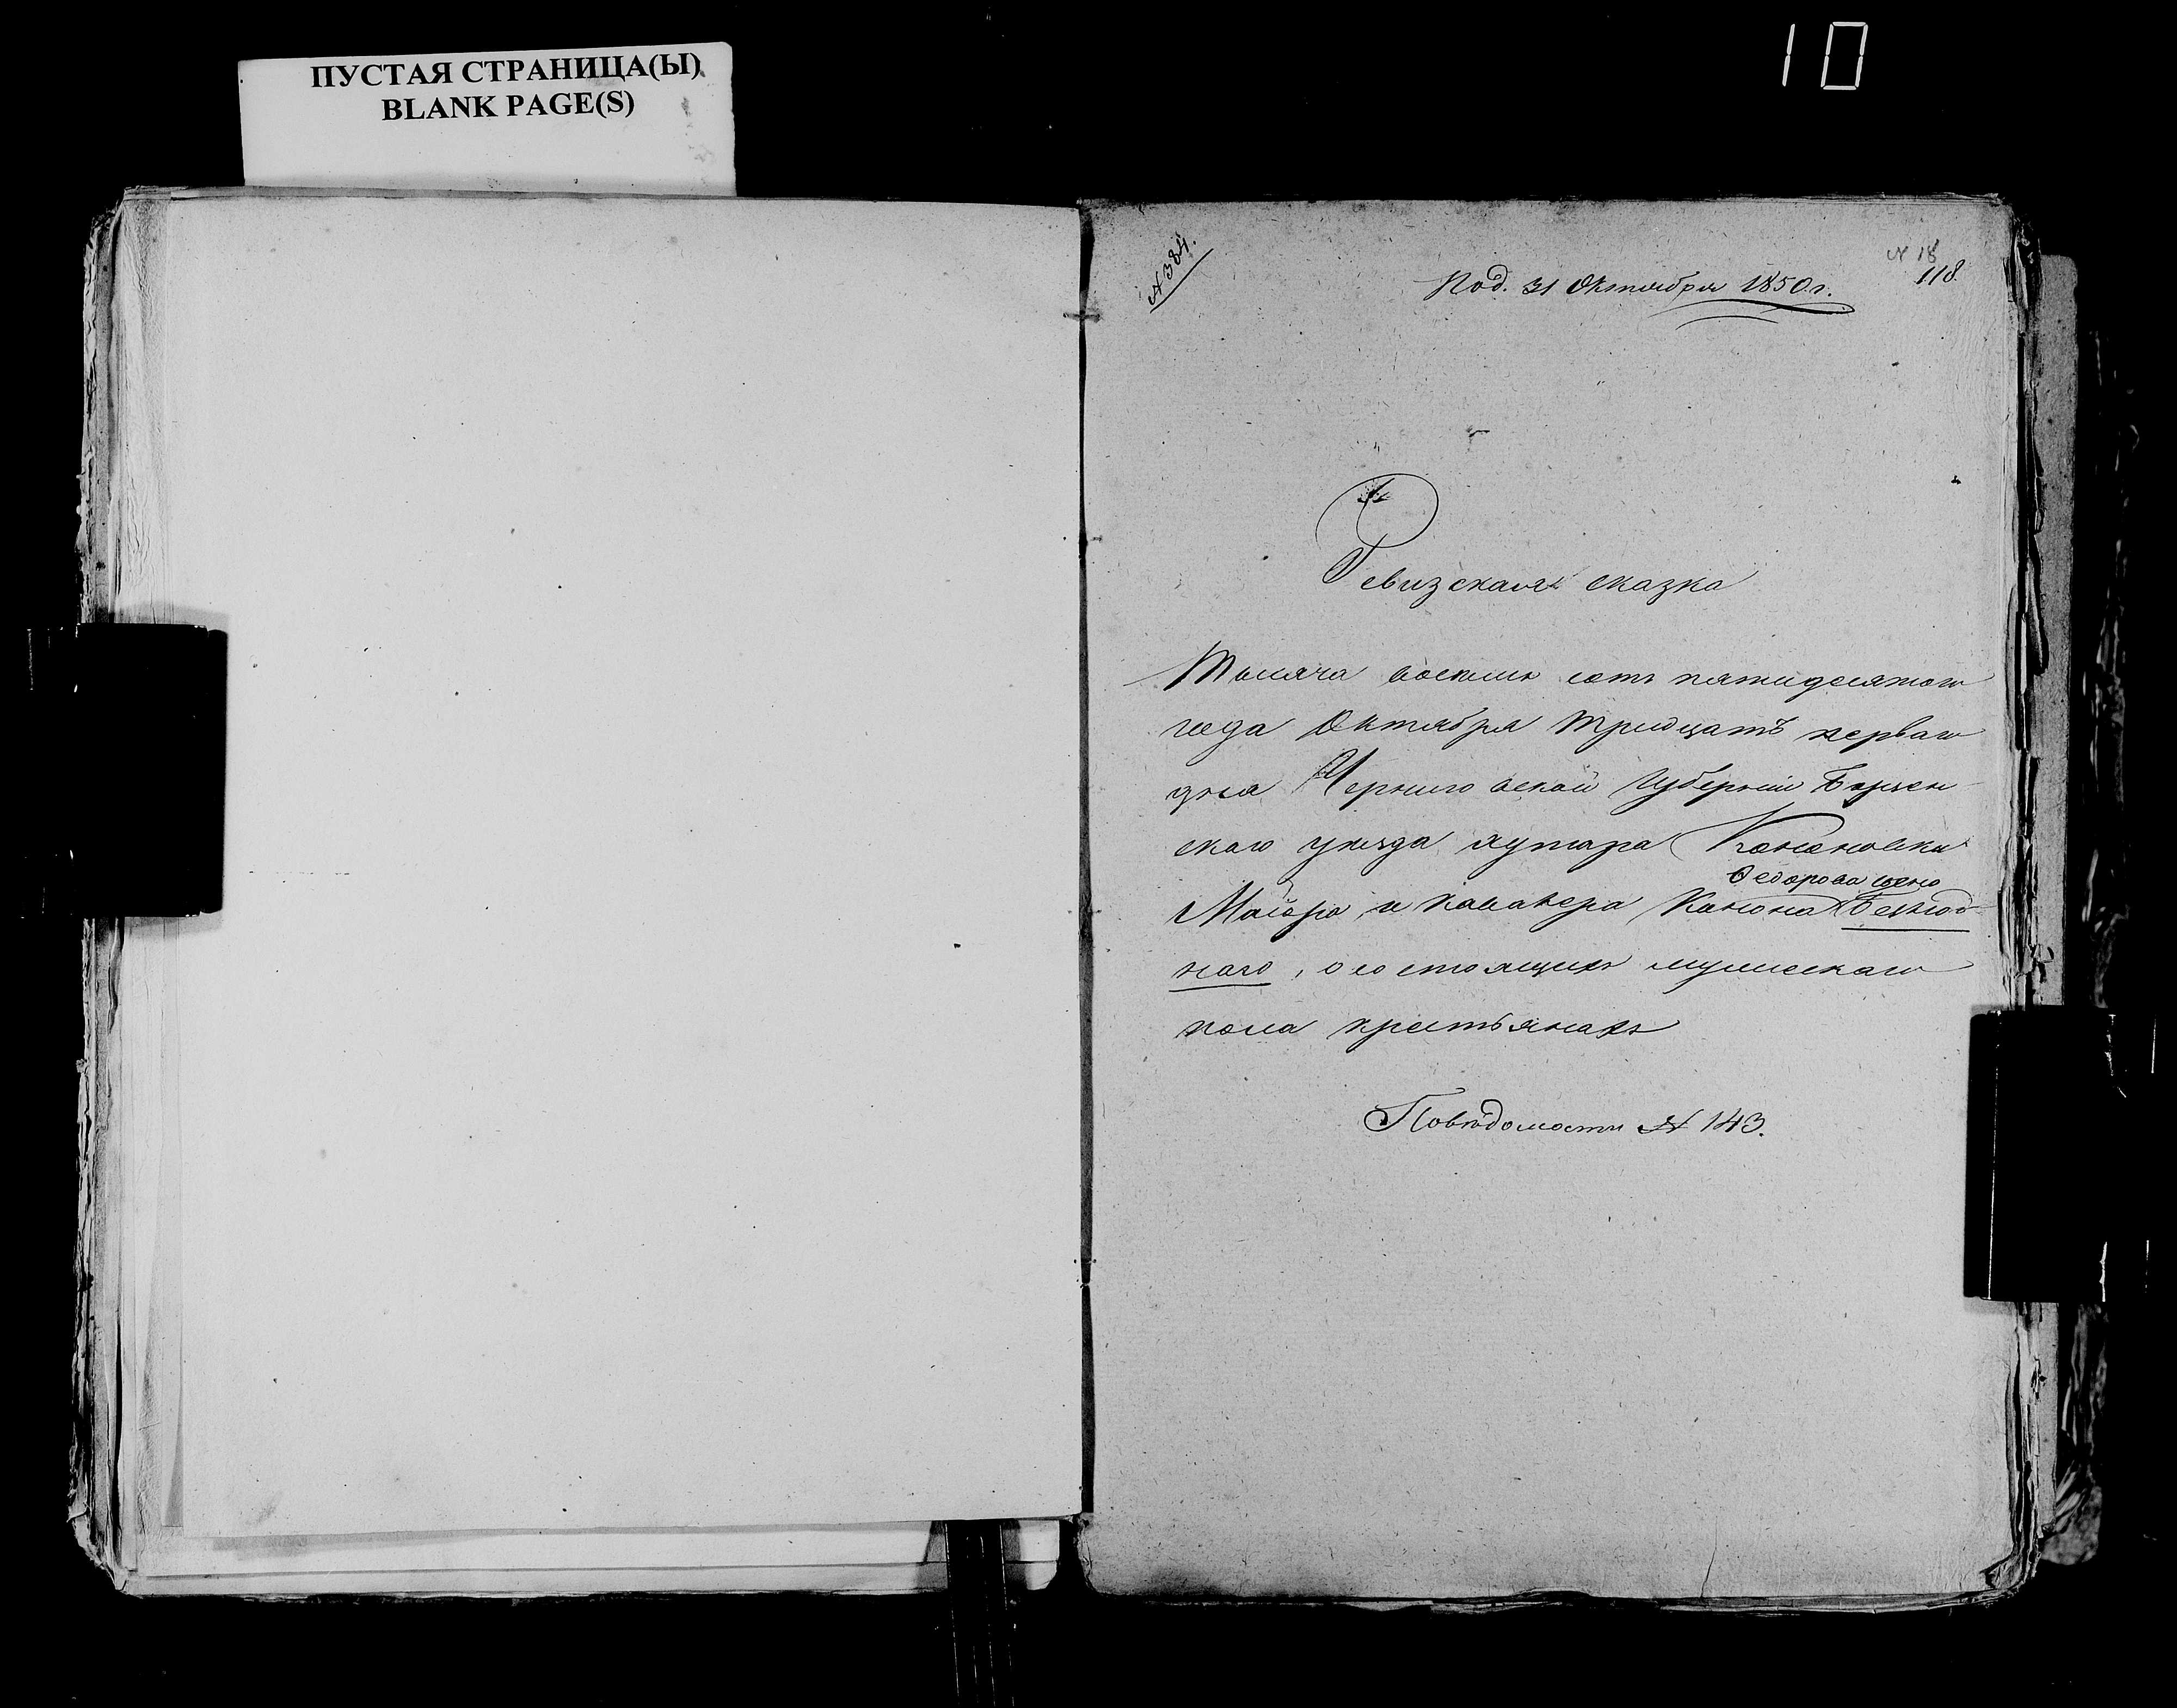 ПУСТАЯ СТРАНИЦА(Ы)
BLANK PAGE(S)
10
№ 384.
№ 18
118.
Под. 31 Октября 1850 г.
Ревизская сказка
Тысяча восемь сотъ пятидесятого
года Октября тридцать перваго
дня Черниговской Губерніи Борзен
скаго уезда хутора Кононовки
Федорова сына
Маіора и Кавалера Конона Безрод
наго, о состоящихъ мужескаго
пола крестьянахъ
Повѣдомости № 143.